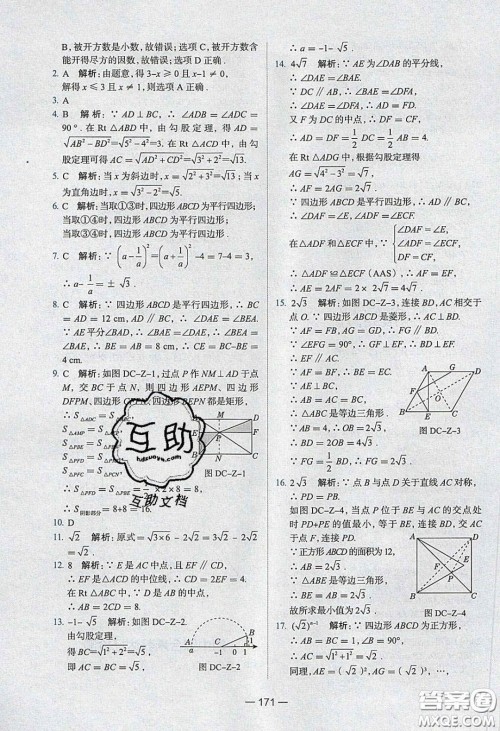 B,被开方数是小数,故错误;选项C,被开方数含
能开得尽方的因数,故错误;选项D正确.
2. A 解析:由题意,得3-x ≥ 0且x-1 ≠ 0,
解得x ≤ 3且x ≠ 1,则选项A正确.
3. A
4. B 解析:∵ AD ⊥ BC, ∴ ∠ADB = ∠ADC =
90°. 在Rt △ABD中,由勾股定理,得AD =
√(AB²-BD²)=√5. 在Rt △ACD中,由勾
股定理可得AC = √(AD²+CD²)=√(3²+2²)=√13.
5. C 解析:当x为斜边时,x = √(2²+3²)=√13;当x
为直角边时,x = √(3²-2²)=√5.
6. C 解析:当取①③时,四边形ABCD为平行四边形;
当取③④时,四边形ABCD为平行四边形.
7. C 解析:∵ (a-1/a)²=(a+1/a)²-4=7-4=3,
∴ a-1/a = ± √3.
8. C 解析:∵ 四边形ABCD是平行四边形,
∴ BC = AD = 12 cm, AD // BC, ∴ ∠DAE = ∠BEA.
∵ AE平分∠BAD, ∴ ∠BAE = ∠DAE,
∴ ∠BEA = ∠BAE, ∴ BE = AB = 8 cm, ∴ CE = BC-BE =
4 cm.
9. C 解析:如图DC-Z-1,过点P作NM⊥AD于点
M,交BC于点N,则四边形AEPM,四边形
DFPM,四边形CFPN,四边形BEPN都是矩形,
∴ S△ADC = S
S△AMP = S
S△PFD = S
S△PFC = S
∴ S△PFD = S × 2 × 8 = 8,
∴ S阴影部分 = 8+8 = 16.
图DC-Z-1
10. D
11. √2 解析:原式 = √(3×6) - 2√2 = 3√2 - 2√2 = √2.
12. 8 解析:∵ E是AC中点,且EF // CD,
∴ EF是△ACD的中位线,∴ CD = 2EF = 4.
在Rt △ABC中,∵ D是AB的中点,
∴ AB = 2CD = 8.
13. -1-√5 解析:如图DC-Z-2,
由勾股定理,
得BC = √(1²+2²)=√5,
即AC = BC = √5,
图DC-Z-2
∴ a = -1-√5.
14. 4√7 解析:∵ AE为∠DAB的平分线,
∴ ∠DAE = ∠BAE.
∵ DC // AB, ∴ ∠BAE = ∠DFA,
∴ ∠DAE = ∠DFA, ∴ AD = FD.
又F为DC的中点,∴ DF = CF,
∴ AD = DF = 1/2 DC = 1/2 AB = 4.
在Rt △ADG中,根据勾股定理得
AG = √(4²-3²)=√7,则AF = 2AG = 2√7.
∵ 四边形ABCD是平行四边形,∴ AD // BC,
∴ ∠DAF = ∠E, ∠ADF = ∠ECF.
在△ADF和△ECF中,∵ {∠DAF = ∠E, ∠ADF = ∠ECF, DF = CF,
∴ △ADF ≌ △ECF(AAS),∴ AF = EF,
∴ AE = 2AF = 4√7.
15. 2√3 解析:如图DC-Z-3,连接BD, AC相交于
点O. ∵ 四边形ABCD为菱形,
∴ AC ⊥ BD.
∵ ∠EFG = 90°, ∴ EF ⊥ FG.
∵ EF // AC, ∴ FG // BD,
∴ FG = 1/2 BD.
∵ △ABC是等边三角形,
∴ BO = 2√3,
∴ BD = 4√3, ∴ FG = 2√3.
图DC-Z-3
16. 2√3 解析:∵ 点B与点D关于直线AC对称,
∴ PD = PB.
如图DC-Z-4,当P在BE与AC的交点处
时PD+PE的值最小,为BE的长度.
∵ 正方形ABCD的面积为12,
∴ AB = 2√3.
又∵ △ABE是等边三角形,
∴ BE = AB = 2√3,
故所求最小值为2√3.
图DC-Z-4
17. (√2)ⁿ⁻¹ 解析:∵ 四边形ABCD为正方形,
∴ AC = √(1²+1²) = √2.
同理,AE = (√2)², AG = (√2)³, …,
— 171 —
互助
hdzuoye.com
互助文档
答案圈
MXQE.COM